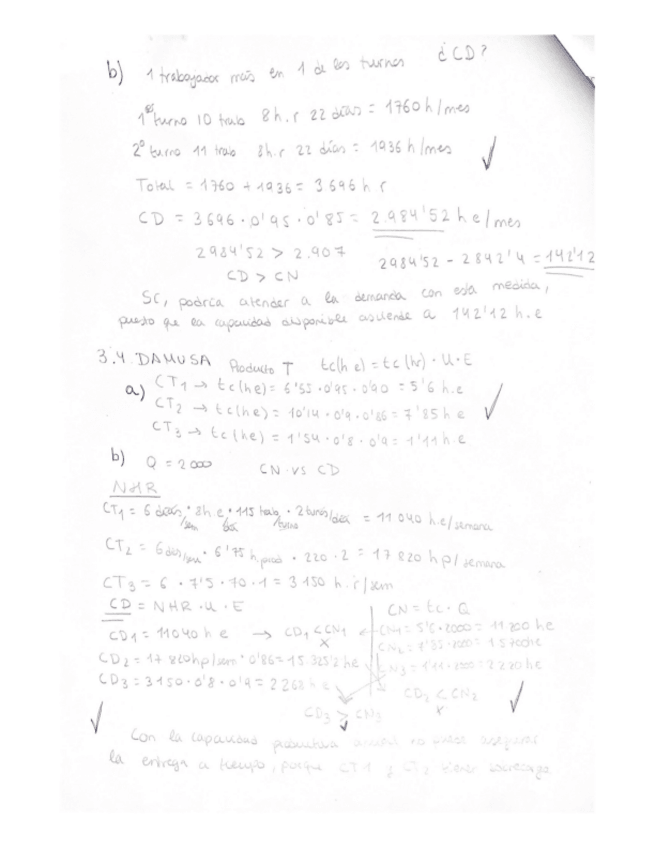 b) 1 trabajador más en 1 de los turnos ¿CD?
1er turno 10 trab 8h.r 22 días = 1760 h/mes
2º turno 11 trab 8h.r 22 días = 1936 h/mes
Total = 1760 + 1936 = 3696 h r
CD = 3696 · 0'95 · 0'85 = 2.984'52 h e/mes
2984'52 > 2.907
2984'52 - 2842'4 = 142'12
CD > CN
Sí, podría atender a la demanda con esta medida,
puesto que la capacidad disponible asciende a 142'12 h.e
3.4. DAMUSA Producto T tc(h e) = tc(hr) · U · E
a) CT1 → tc(he) = 6'55 · 0'95 · 0'90 = 5'6 h.e
CT2 → tc(he) = 10'14 · 0'9 · 0'86 = 7'85 h e
CT3 → tc(he) = 1'54 · 0'8 · 0'9 = 1'11 h e
b) Q = 2000 CN vs CD
NHR
CT1 = 6 días/sem · 8h.e/día · 115 trab/turno · 2 turnos/día = 11 040 h.e/semana
CT2 = 6 días/sem · 6'75 h.prod · 220 · 2 = 17 820 h p/semana
CT3 = 6 · 7'5 · 70 · 1 = 3 150 h.r/sem
CD = NHR · U · E
CN = tc · Q
CD1 = 11040 h e → CD1 < CN1 ← CN1 = 5'6 · 2000 = 11 200 h e
x
CN2 = 7'85 · 2000 = 15700 he
CD2 = 17 820 hp/sem · 0'86 = 15 325'2 h e
CN3 = 1'11 · 2000 = 2220 h e
CD3 = 3150 · 0'8 · 0'9 = 2268 h e
CD2 < CN2
x
CD3 > CN3
Con la capacidad productiva actual no puede asegurar
la entrega a tiempo, porque CT1 y CT2 tienen sobrecarga